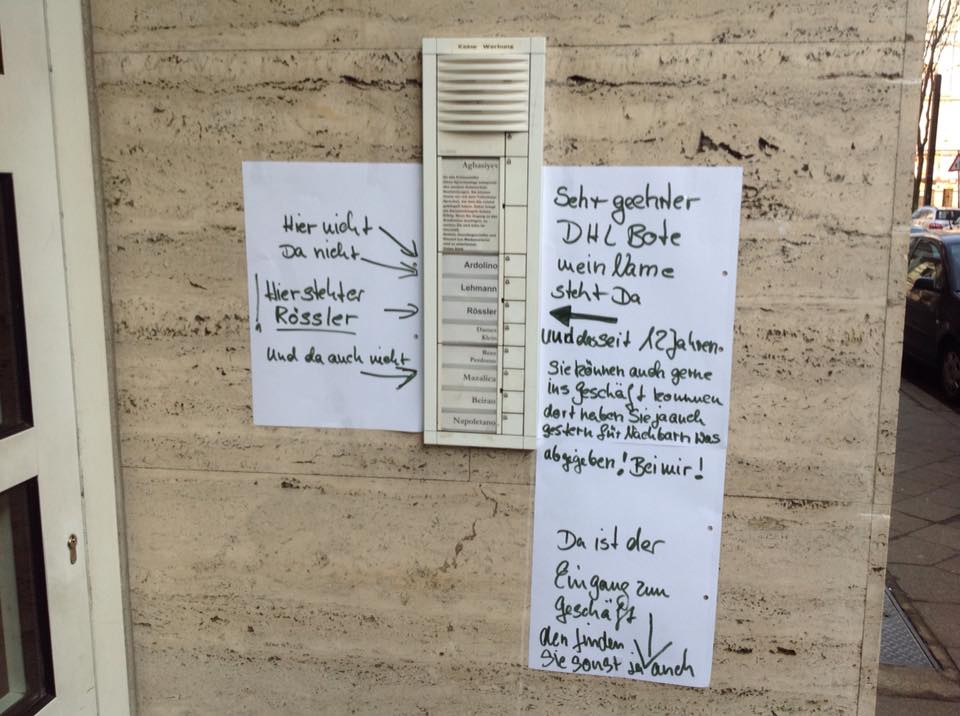 Keine Werbung
Hier nicht
Da nicht
Hier steht er
Rössler
!
Und da auch nicht
Aghasiyev
Ardolino
Lehmann
Rössler
Klein
Mazalica
Beirau
Napoletano
Sehr geehrter
DHL Bote
mein Name
steht Da
und das seit 12 Jahren.
Sie können auch gerne
ins Geschäft kommen
dort haben Sie ja auch
gestern für Nachbarn was
abgegeben! Bei mir!
Da ist der
Eingang zum
Geschäft
den finden
Sie sonst ja auch